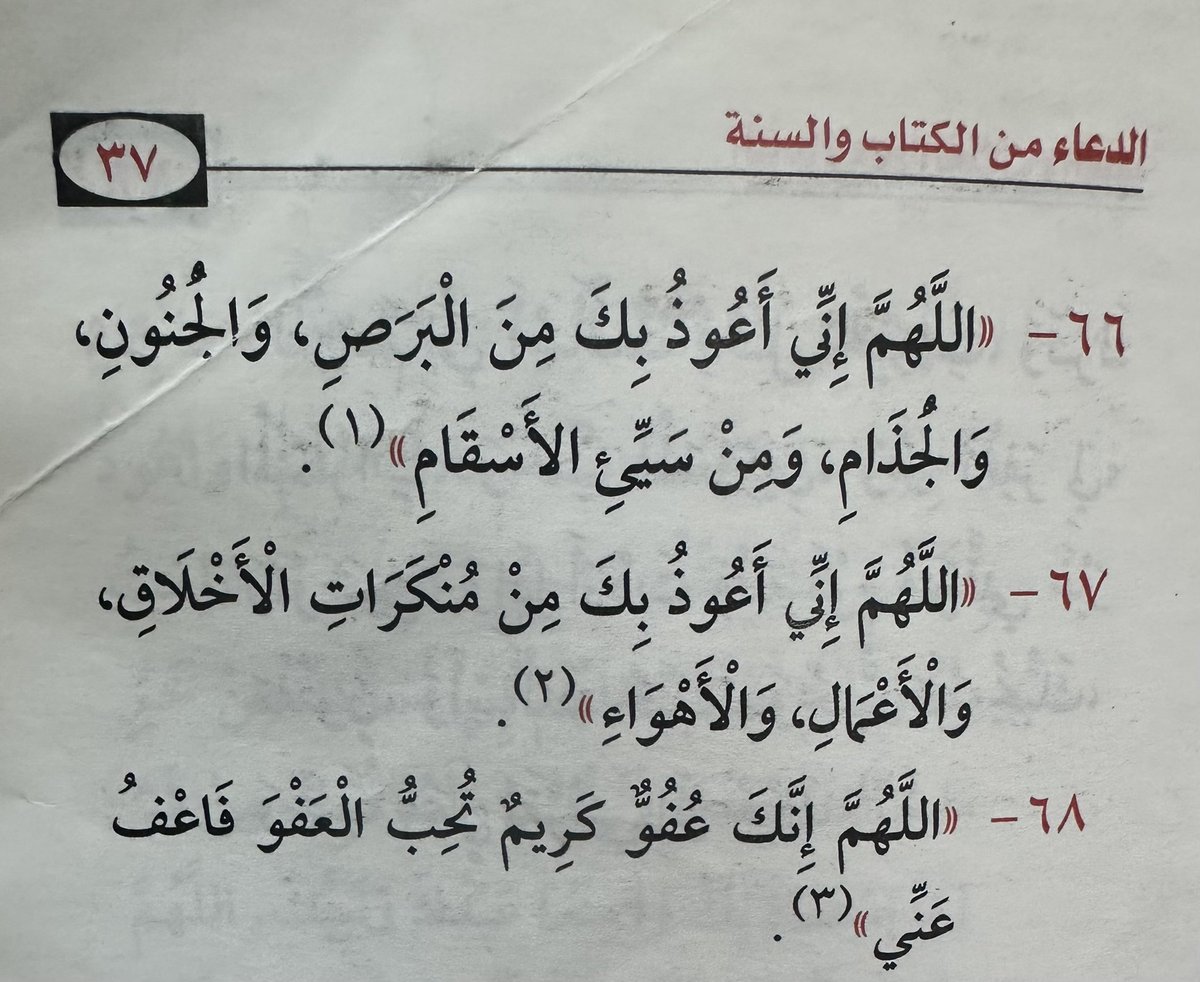 الدعاء من الكتاب والسنة
٣٧
٦٦- «اللَّهُمَّ إِنِّي أَعُوذُ بِكَ مِنَ الْبَرَصِ، وَالْجُنُونِ،
وَالْجُذَامِ، وَمِنْ سَيِّئِ الأَسْقَامِ»(١).
٦٧- «اللَّهُمَّ إِنِّي أَعُوذُ بِكَ مِنْ مُنْكَرَاتِ الْأَخْلَاقِ،
وَالْأَعْمَالِ، وَالْأَهْوَاءِ»(٢).
٦٨- «اللَّهُمَّ إِنَّكَ عُفُوٌّ كَرِيمٌ تُحِبُّ الْعَفْوَ فَاعْفُ
عَنِّي»(٣).